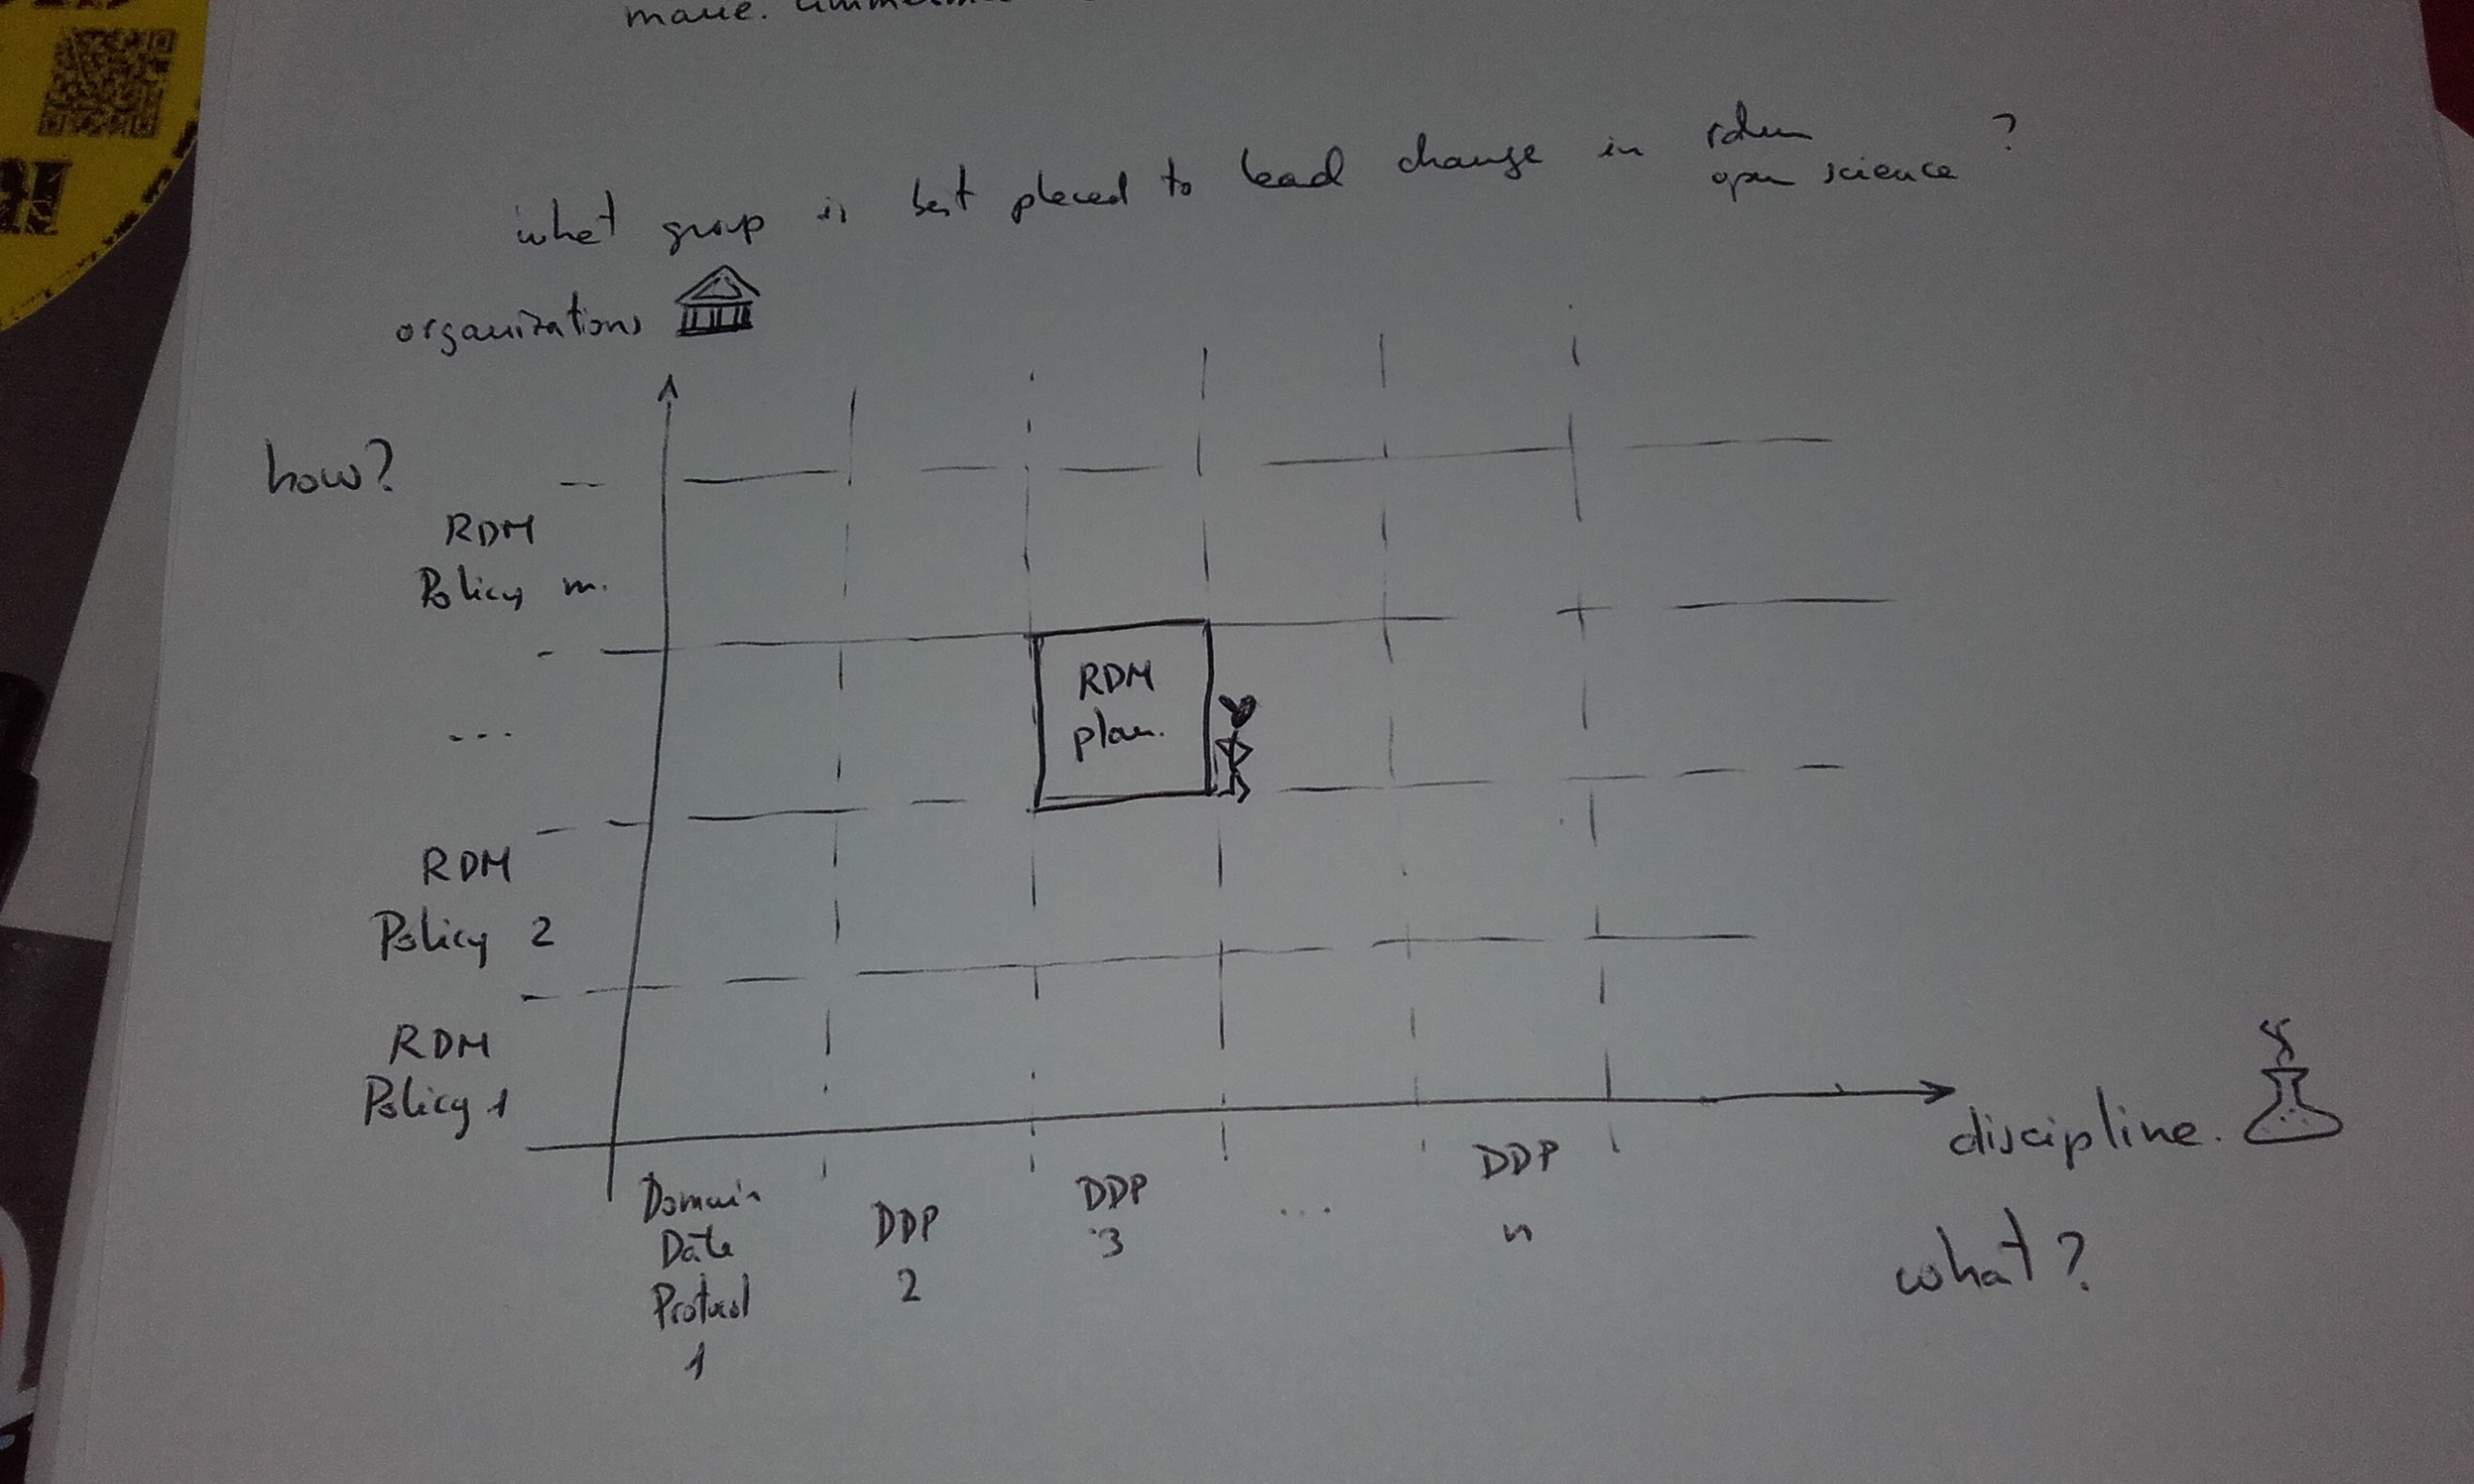 what group is best placed to lead change in rdm
open science ?
organizations
how?
RDM
Policy m.
...
RDM
Policy 2
RDM
Policy 1
RDM
plan.
Domain
Data
Protocol
1
DDP
2
DDP
3
...
DDP
n
discipline.
what?